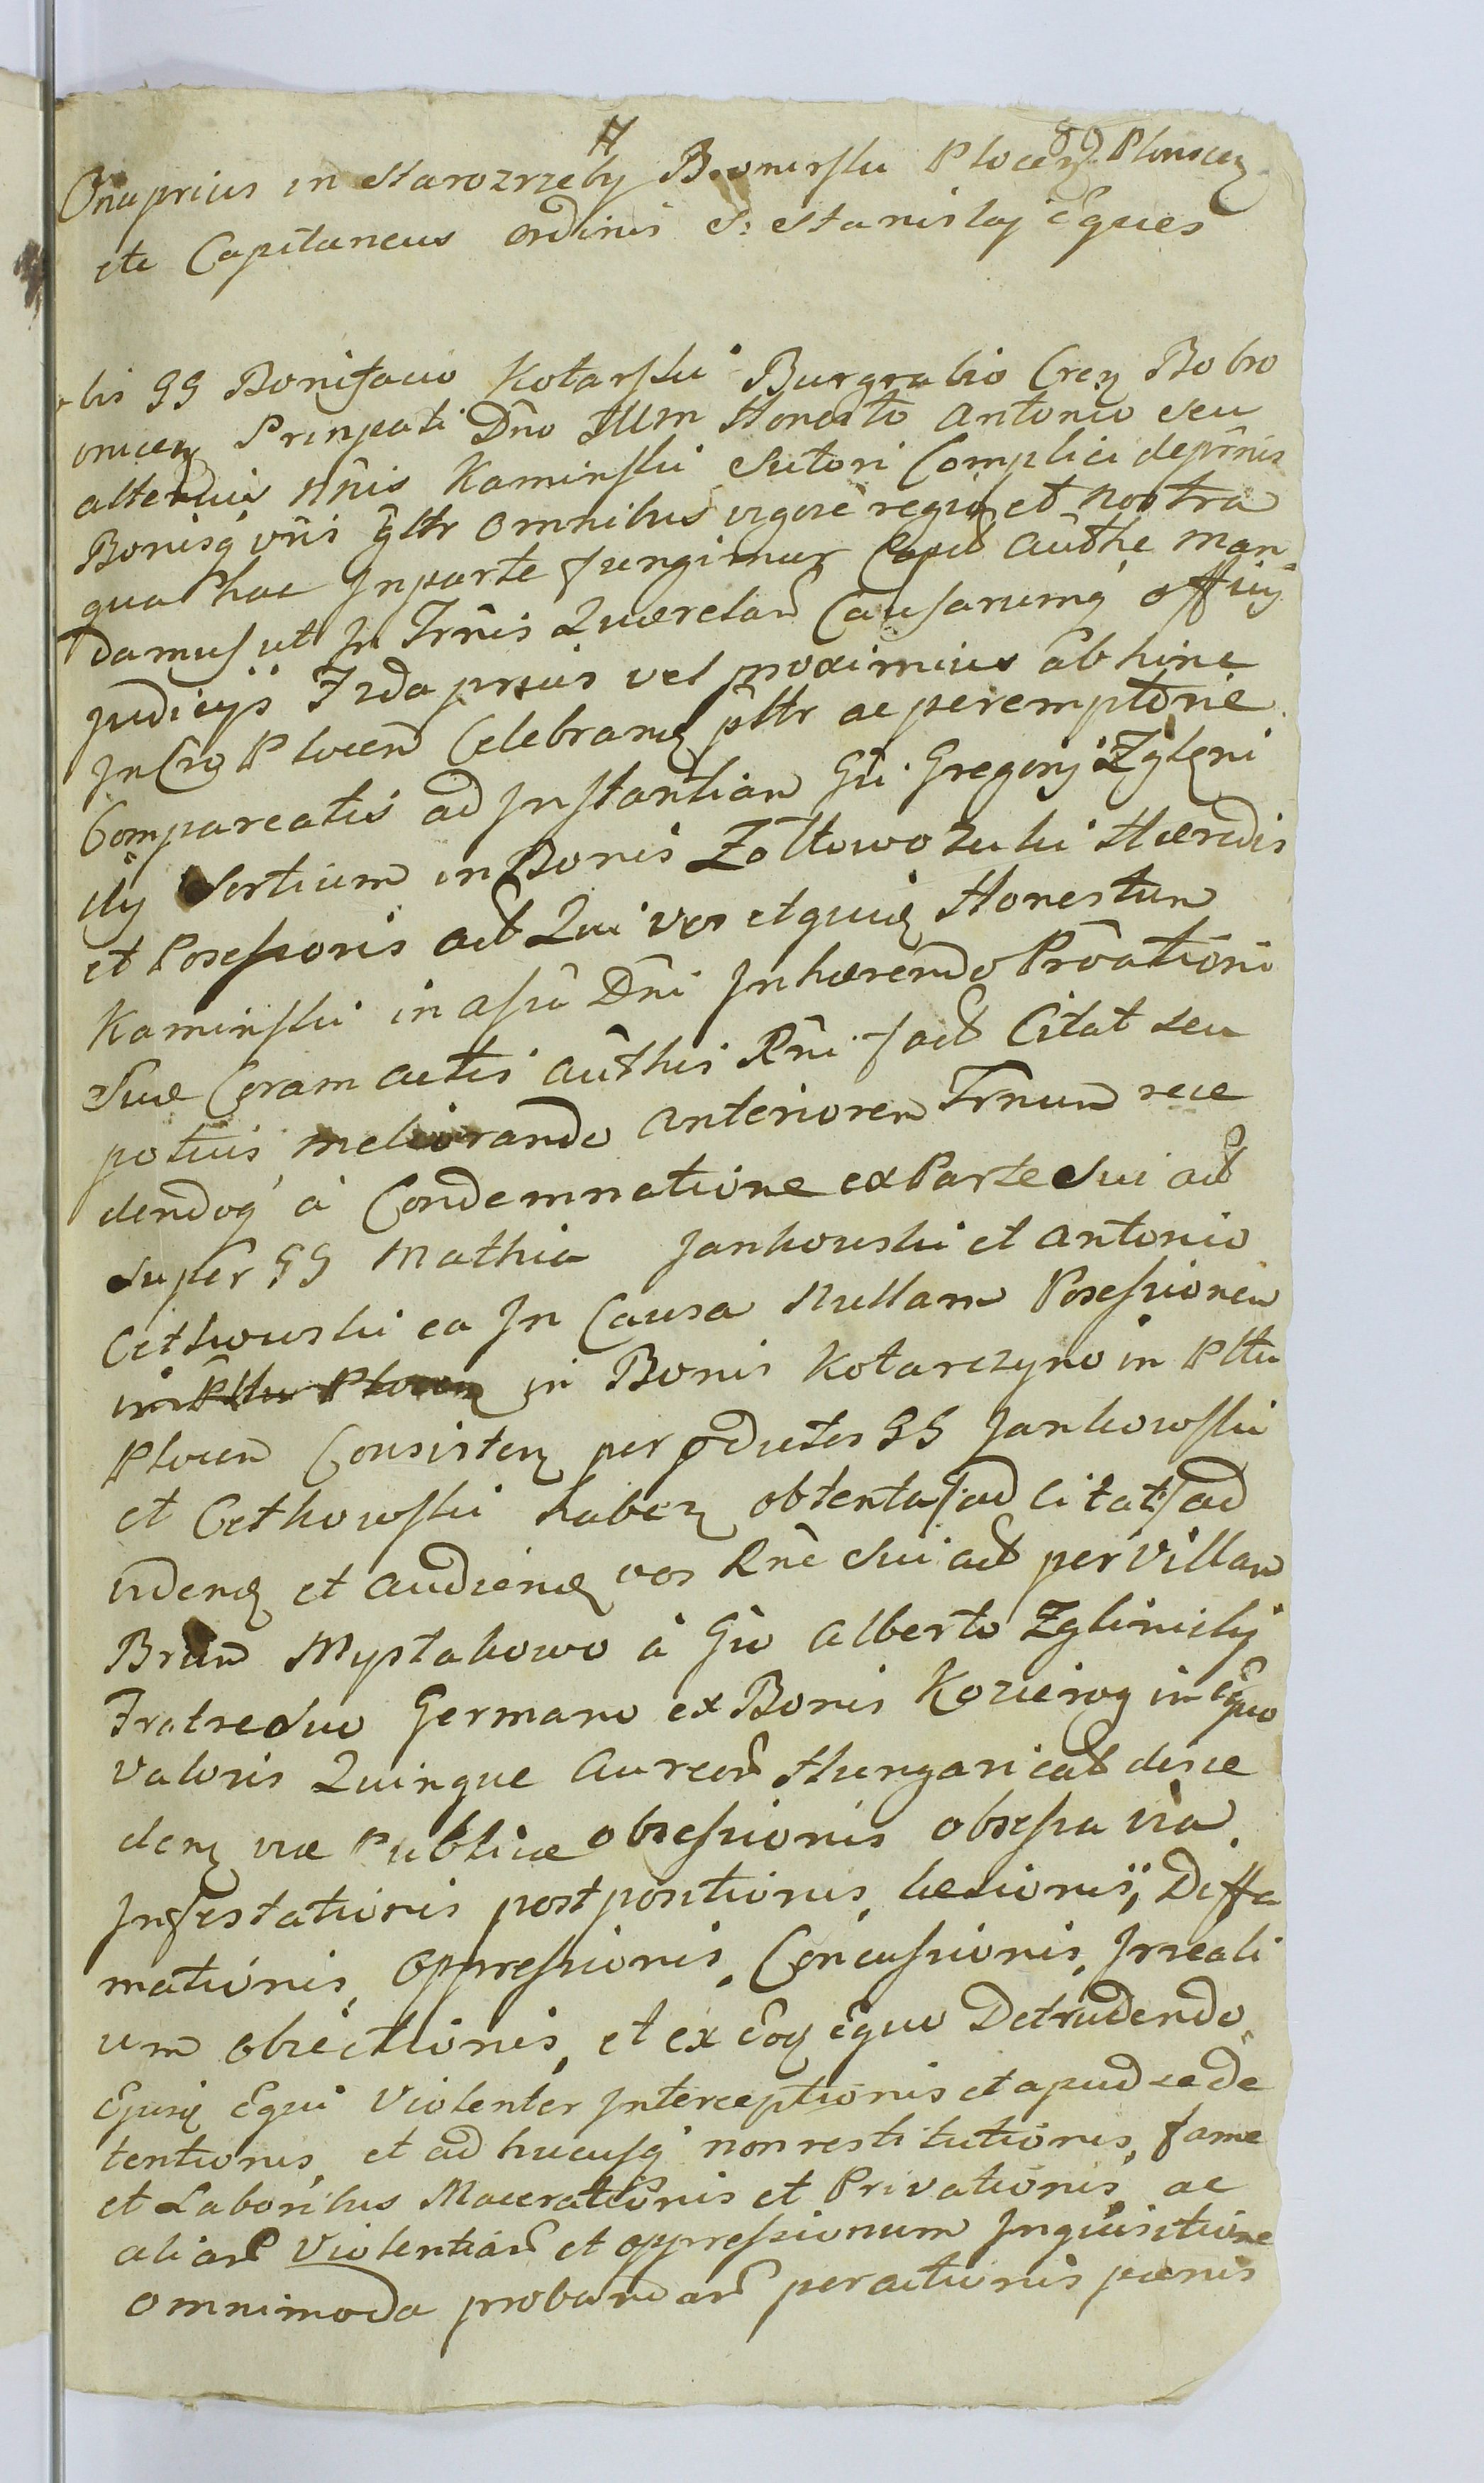 89
Onuprius in Starozrzeby Bromirski Plocen Plonscen
etc Capitaneus Ordinis S: Stanislaj Eques
bis GG Bonifacio Kotarski Burgrabio Cren Bobro
onicen Prinpali Dno Illm Honesto Antonio seu
alterius nnis Kaminski Sutori Complici depnis
Bonisq vris gltr omnibus vigore regia et nostra
qua hac Inparte fungimur Capit authe man
damus ut In Trnis Querelar Causarumq officij
judicijs Frda prius vel proximius abhinc
in Cro Plocen Celebrand pltr ac peremptorie
Compareatis ad Instantiam Gli Gregorij Zgleni
ckj Sortium in Bonis Zoltowo Suki Haeredis
et Possessoris act Qui vos etquid Honestum
Kaminski in assu Dni Inhaerendo Proationi
Suae Coram actis authis Rni fact Citat seu
potius meliorando anteriorem Trnum rece
dendoq à Condemnatione ex Parte Sui act
Super GG Mathia Jankowski et Antonio
Cethowski ea In Causa Nullam Possessionem
in Pltu Plocen in Bonis Kotarczyno in Pltu
Plocen Consisten per pdictos GG Jankowski
et Cethowski haben obtenta ad citat ad
vidend et audiend vos Rne Sui act per Villam
Bram Mystakowo à Go Alberto Zglinickj
Fratre Suo Germano ex Bonis Kozierog in Equo
valoris Quinque Aureor Hungarical disce
den viae Publicae obsessionis obsessa via
Infestationis postpositionis laesionis, Diffa
mationis, oppressionis, Concussionis, Irreali
um obiectionis, et ex Eoq Equo Detrudendo
Ejusq Equi Violenter Interceptionis et apud se de
tentionis, et ad hucusq non restitutionis, fame
et Laboribus Macerationis et Privationis, ac
aliar Violentiar et oppressionum Inquisitione
omnimoda probandar peractionis paenis